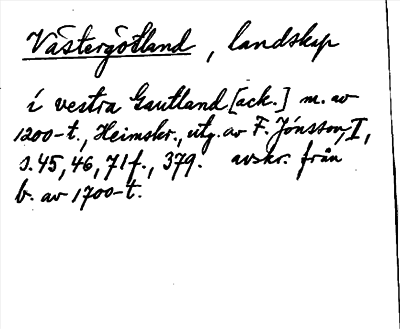 Västergötland, landskap
í vestra Gautland [ack.] m. av
1200-t., Heimskr., utg. av F. Jónsson, I,
s. 45, 46, 71 f., 379. avskr. från
b. av 1700-t.